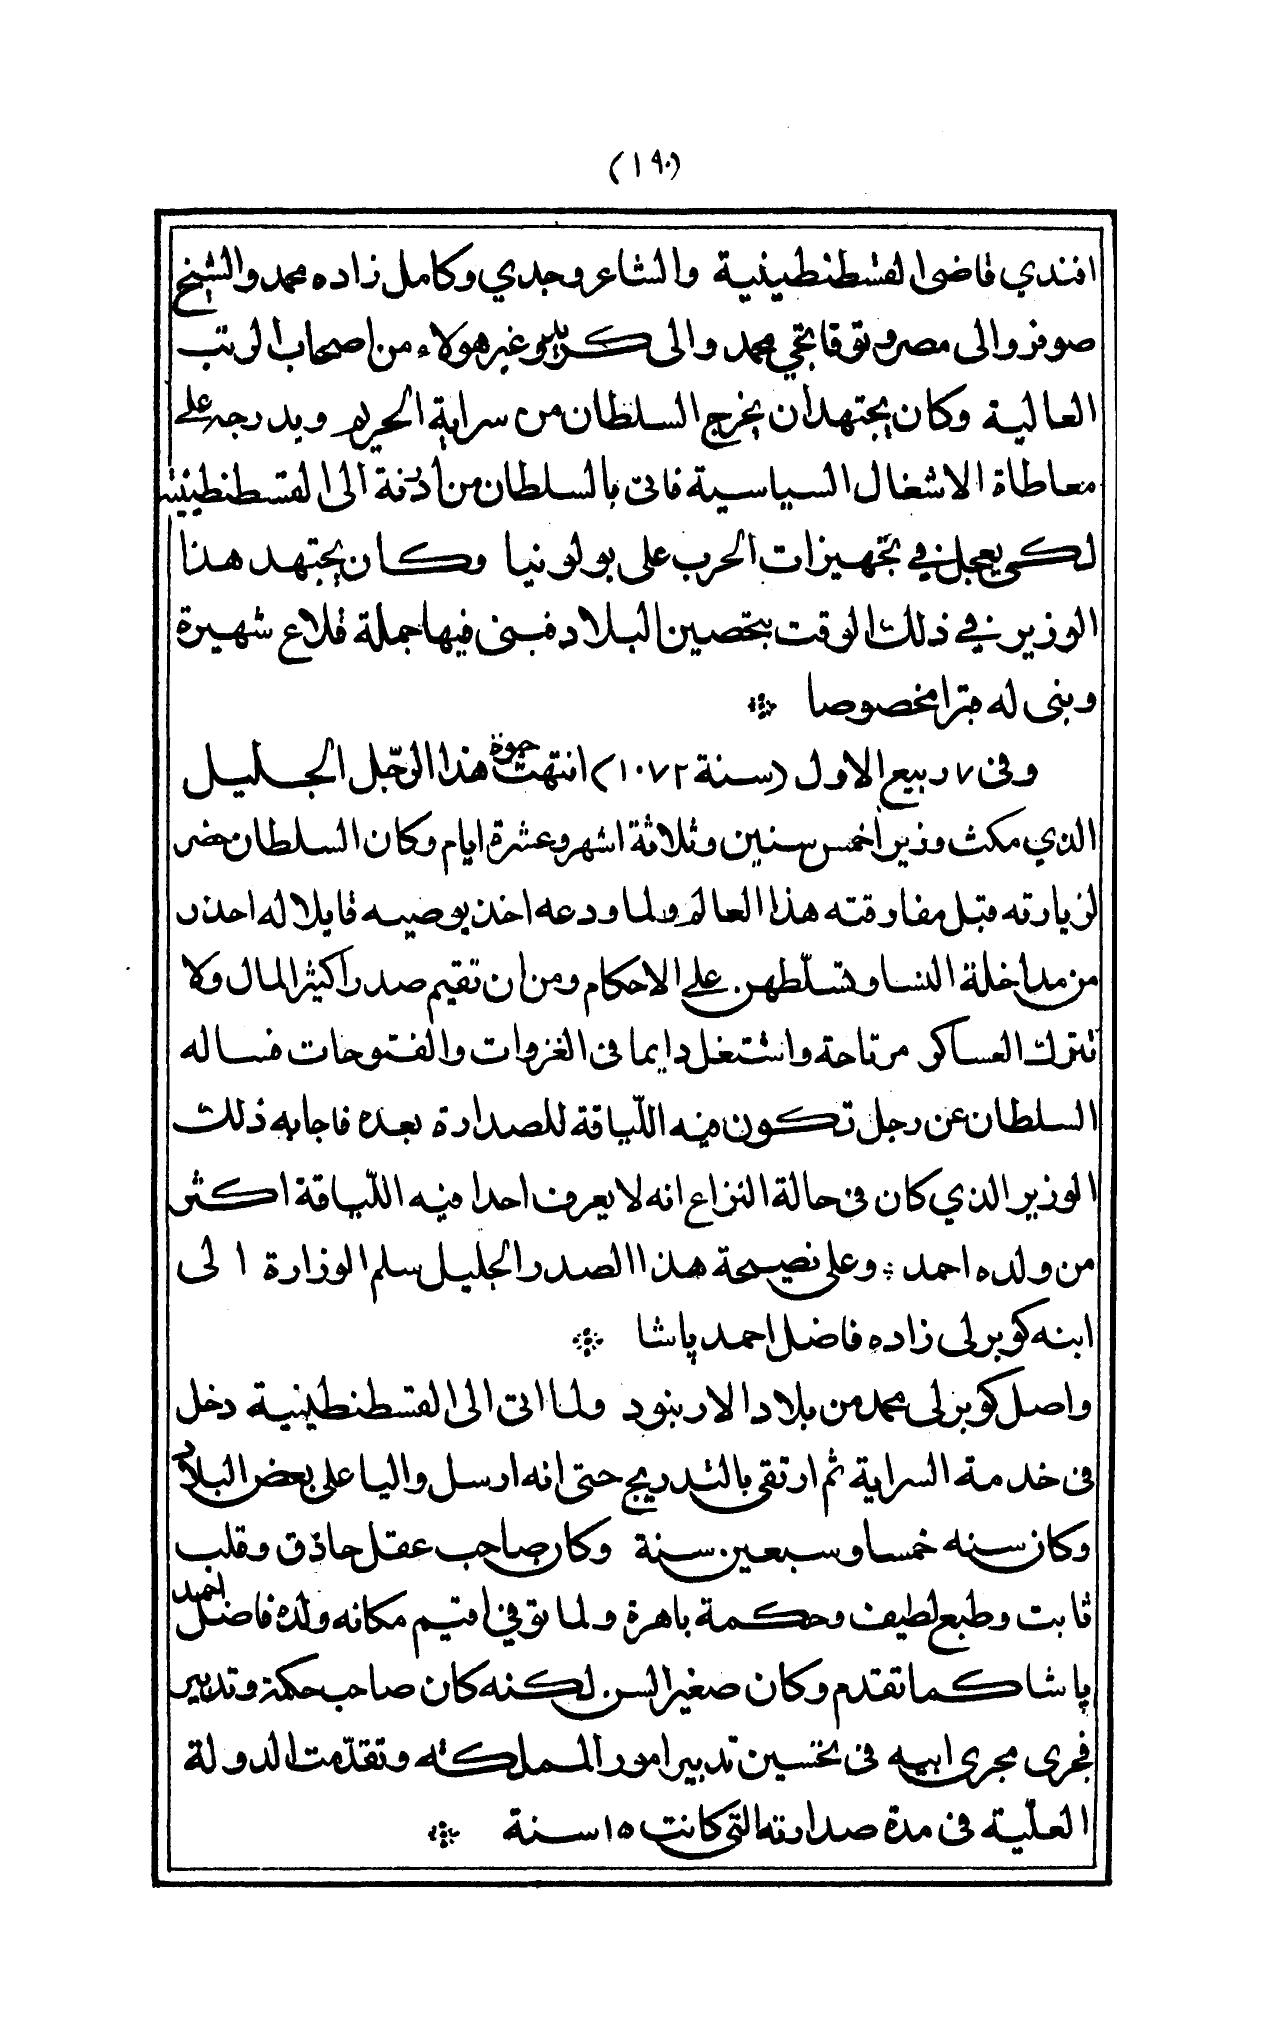 (١٩٠)
افندي قاضى القسطنطينية والشاعر وجدي وكامل زاده محمد والشيخ
صوفز والى مصر وتوقاتجي محمد والى كريد وغير هولاء من اصحاب الرتب
العالية وكان يجتهد ان يخرج السلطان من سراية الحريم ويدرجه على
معاطاة الاشغال السياسية فاتى بالسلطان من أدنة الى القسطنطينية
لكى يعجل في تجهيزات الحرب على بولونيا وكان يجتهد هذا
الوزير في ذلك الوقت بتحصين البلاد فبنى فيها جملة قلاع شهيرة
وبنى له قبرا مخصوصا
وفى ٧ ربيع الاول (سنة ١٠٧٢) انتهت حيوة هذا الرّجل الجليل
الذي مكث وزيرا خمس سنين وثلاثة اشهر وعشرة ايام وكان السلطان حضر
لزيارته قبل مفارقته هذا العالم ولما ودعه اخذ يوصيه قايلا له احذر
من مداخلة النسا وتسلّطهن على الاحكام ومن ان تقيم صدرا كثير المال ولا
تترك العساكر مرتاحة واشتغل دايما فى الغزوات والفتوحات فساله
السلطان عن رجل تكون فيه اللّياقة للصدارة بعده فاجابه ذلك
الوزير الذي كان فى حالة النزاع انه لا يعرف احدا فيه اللّياقة اكثر
من ولده احمد وعلى نصيحة هذا الصدر الجليل سلم الوزارة الى
ابنه كوبرلى زاده فاضل احمد پاشا
واصل كوبرلى محمد من بلاد الارنبود ولما اتى الى القسطنطينية دخل
فى خدمة السراية ثم ارتقى بالتدريج حتى انه ارسل واليا على بعض البلاد
وكان سنه خمسا وسبعين سنة وكان صاحب عقل حاذق وقلب
ثابت وطبع لطيف وحكمة باهرة ولما توفي اقيم مكانه ولده فاضل احمد
پاشا كما تقدم وكان صغير السن لكنه كان صاحب حكمة وتدبير
فجرى مجرى ابيه فى تحسين تدبير امور المملكة وتقدّمت الدولة
العلّية فى مدة صدارته التى كانت ١٥ سنة